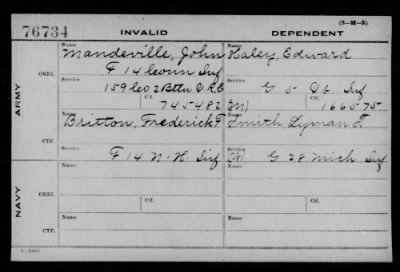 76734 INVALID (3-H-3) DEPENDENT
Name Name
Mandeville, John Haley, Edward
F 14 Conn Inf
ORIG. Service Service
159 Co 2 Battn V.R.C. G 5 Inf
Ctf. Ctf.
745482 (M) 166575
ARMY
Name Name
Britton, Frederick F Smith, Lyman T.
CTF. Service Service
F 14 N.H. Inf (W) G 28 Mich Inf
Name Name
ORIG. Service Service
Ctf. Ctf.
NAVY
Name Name
CTF.